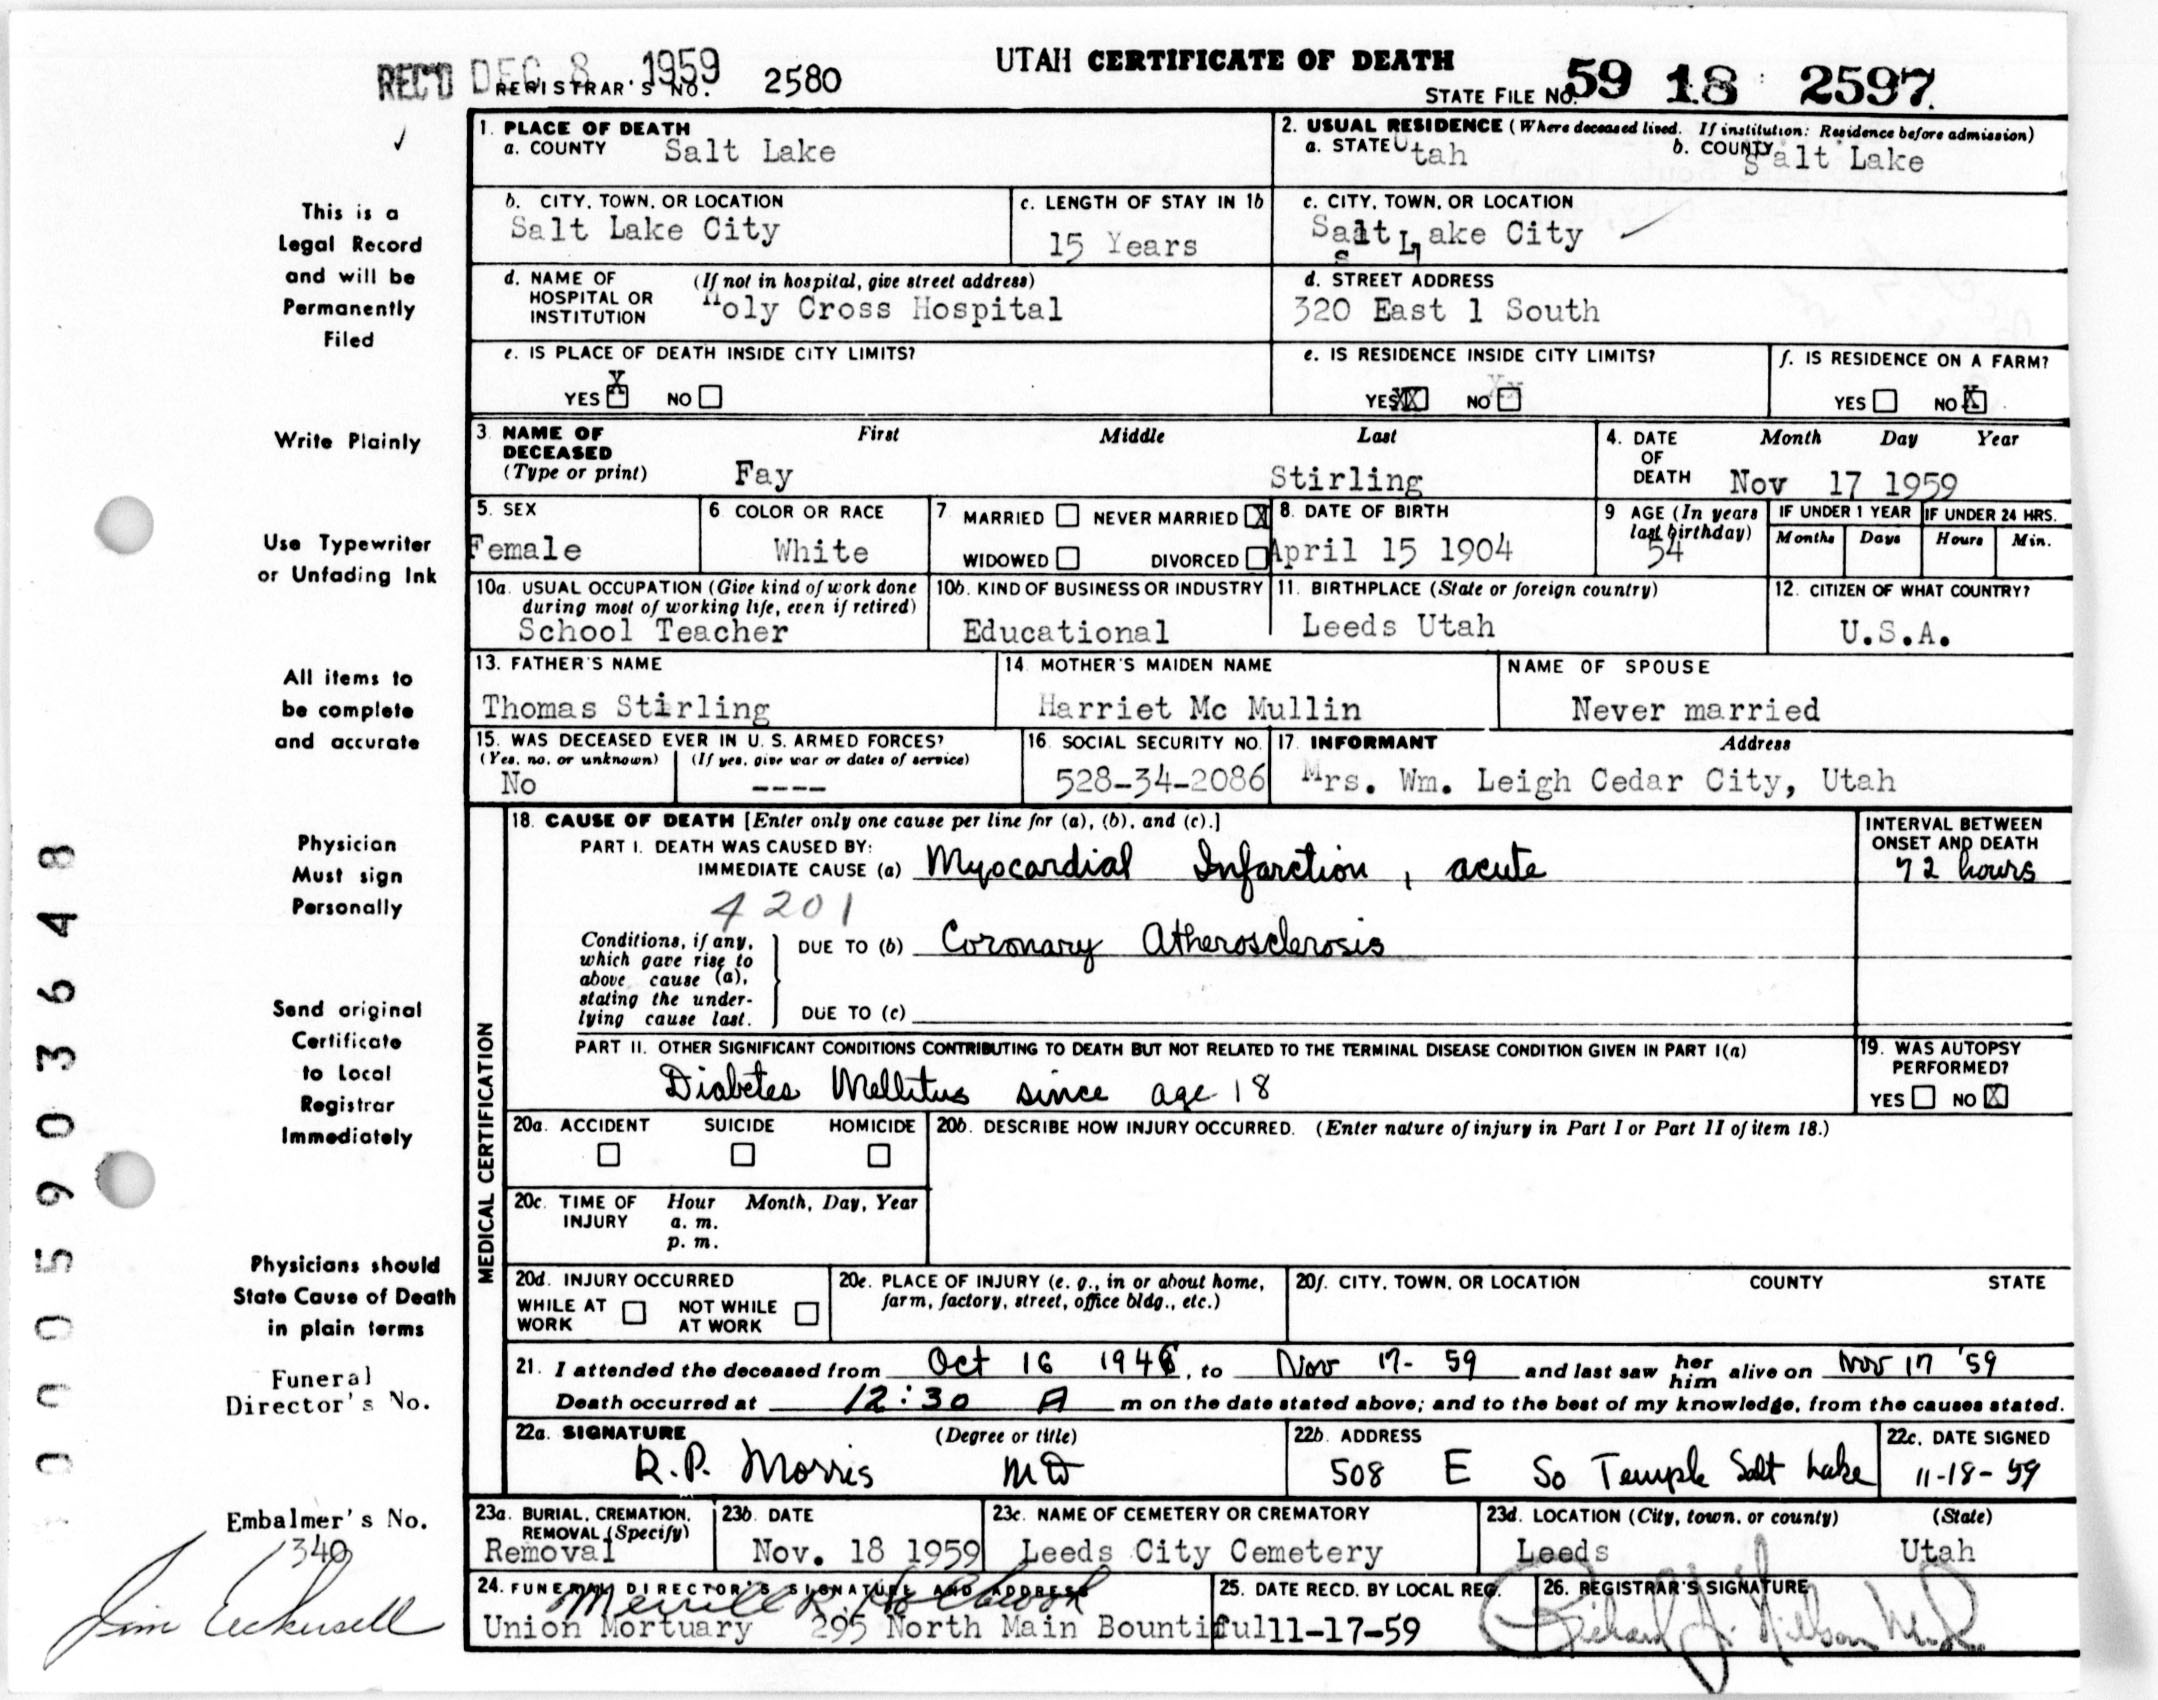 REC'D DEC 8 1959
REGISTRAR'S NO. 2580
UTAH CERTIFICATE OF DEATH
STATE FILE NO. 59 18 2597
1. PLACE OF DEATH
a. COUNTY Salt Lake
2. USUAL RESIDENCE (Where deceased lived. If institution: Residence before admission)
a. STATE Utah b. COUNTY Salt Lake
b. CITY, TOWN, OR LOCATION
Salt Lake City
c. LENGTH OF STAY IN 1b
15 Years
c. CITY, TOWN, OR LOCATION
Salt Lake City
d. NAME OF HOSPITAL OR INSTITUTION (If not in hospital, give street address)
Holy Cross Hospital
d. STREET ADDRESS
320 East 1 South
e. IS PLACE OF DEATH INSIDE CITY LIMITS?
YES X NO
e. IS RESIDENCE INSIDE CITY LIMITS?
YES XX NO
f. IS RESIDENCE ON A FARM?
YES NO X
3. NAME OF DECEASED (Type or print)
First Middle Last
Fay Stirling
4. DATE OF DEATH Month Day Year
Nov 17 1959
5. SEX
Female
6 COLOR OR RACE
White
7 MARRIED NEVER MARRIED X
WIDOWED DIVORCED
8. DATE OF BIRTH
April 15 1904
9 AGE (In years last birthday)
54
IF UNDER 1 YEAR IF UNDER 24 HRS.
Months Days Hours Min.
10a. USUAL OCCUPATION (Give kind of work done during most of working life, even if retired)
School Teacher
10b. KIND OF BUSINESS OR INDUSTRY
Educational
11. BIRTHPLACE (State or foreign country)
Leeds Utah
12. CITIZEN OF WHAT COUNTRY?
U.S.A.
13. FATHER'S NAME
Thomas Stirling
14. MOTHER'S MAIDEN NAME
Harriet Mc Mullin
NAME OF SPOUSE
Never married
15. WAS DECEASED EVER IN U. S. ARMED FORCES?
(Yes, no, or unknown) (If yes, give war or dates of service)
No ----
16. SOCIAL SECURITY NO.
528-34-2086
17. INFORMANT Address
Mrs. Wm. Leigh Cedar City, Utah
MEDICAL CERTIFICATION
18. CAUSE OF DEATH [Enter only one cause per line for (a), (b), and (c).]
INTERVAL BETWEEN ONSET AND DEATH
PART I. DEATH WAS CAUSED BY:
IMMEDIATE CAUSE (a) Myocardial Infarction, acute
72 hours
4201
Conditions, if any, which gave rise to above cause (a), stating the underlying cause last.
DUE TO (b) Coronary Atherosclerosis
DUE TO (c)
PART II. OTHER SIGNIFICANT CONDITIONS CONTRIBUTING TO DEATH BUT NOT RELATED TO THE TERMINAL DISEASE CONDITION GIVEN IN PART I(a)
Diabetes Mellitus since age 18
19. WAS AUTOPSY PERFORMED?
YES NO X
20a. ACCIDENT SUICIDE HOMICIDE
20b. DESCRIBE HOW INJURY OCCURRED. (Enter nature of injury in Part I or Part II of item 18.)
20c. TIME OF INJURY Hour Month, Day, Year
a. m.
p. m.
20d. INJURY OCCURRED
WHILE AT WORK NOT WHILE AT WORK
20e. PLACE OF INJURY (e. g., in or about home, farm, factory, street, office bldg., etc.)
20f. CITY, TOWN, OR LOCATION COUNTY STATE
21. I attended the deceased from Oct 16 1946, to Nov 17- 59 and last saw her him alive on Nov 17 '59
Death occurred at 12:30 A m on the date stated above; and to the best of my knowledge, from the causes stated.
22a. SIGNATURE (Degree or title)
R.P. Morris MD
22b. ADDRESS
508 E So Temple Salt Lake
22c. DATE SIGNED
11-18-59
23a. BURIAL, CREMATION, REMOVAL (Specify)
Removal
23b. DATE
Nov. 18 1959
23c. NAME OF CEMETERY OR CREMATORY
Leeds City Cemetery
23d. LOCATION (City, town, or county) (State)
Leeds Utah
24. FUNERAL DIRECTOR'S SIGNATURE AND ADDRESS
Merrill R. Holbrook
Union Mortuary 295 North Main Bountiful
25. DATE RECD. BY LOCAL REG.
11-17-59
26. REGISTRAR'S SIGNATURE
This is a
Legal Record
and will be
Permanently
Filed
Write Plainly
Use Typewriter
or Unfading Ink
All items to
be complete
and accurate
Physician
Must sign
Personally
Send original
Certificate
to Local
Registrar
Immediately
Physicians should
State Cause of Death
in plain terms
Funeral
Director's No.
Embalmer's No.
340